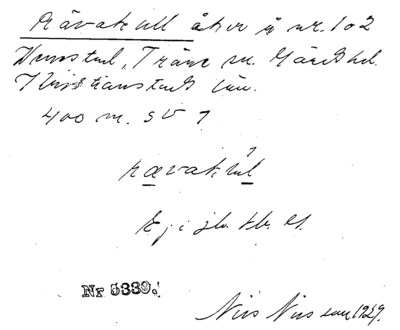 Rävakull åker å nr. 1o2
Hunstad, Träne sn. Gärds hd.
Kristianstads län.
400 m. SV 7
rævakul
Ej i jb. el.
Nr 5339.
Nils Nilsson 1929.